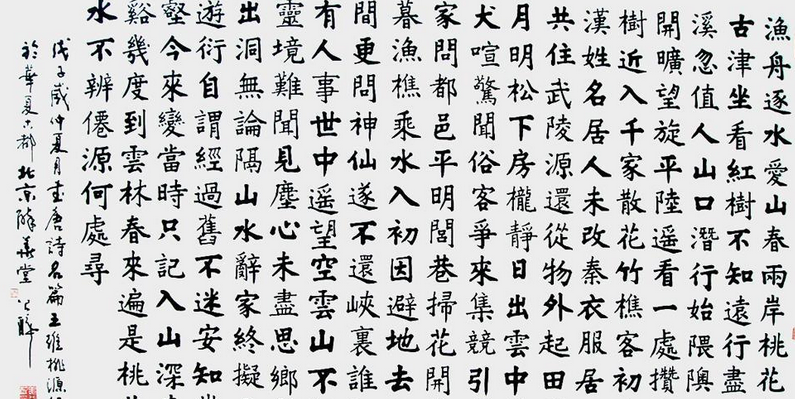 漁舟逐水愛山春兩岸桃花
古津坐看紅樹不知遠行盡
溪忽值人山口潛行始隈隩
開曠望旋平陸遥看一處攢
樹近入千家散花竹樵客初
漢姓名居人未改秦衣服居
共住武陵源還從物外起田
月明松下房櫳靜日出雲中
犬喧驚聞俗客爭來集競引
家問都邑平明閭巷掃花開
暮漁樵乘水入初因避地去
間更問神仙遂不還峽裏誰
有人事世中遥望空雲山不
靈境難聞見塵心未盡思鄉
出洞無論隔山水辭家終擬
遊衍自謂經過舊不迷安知
壑今來變當時只記入山深
谿幾度到雲林春來遍是桃
水不辨僊源何處尋
戊子歲仲夏月書唐詩名篇王維桃源
於華夏古都北京醉堂